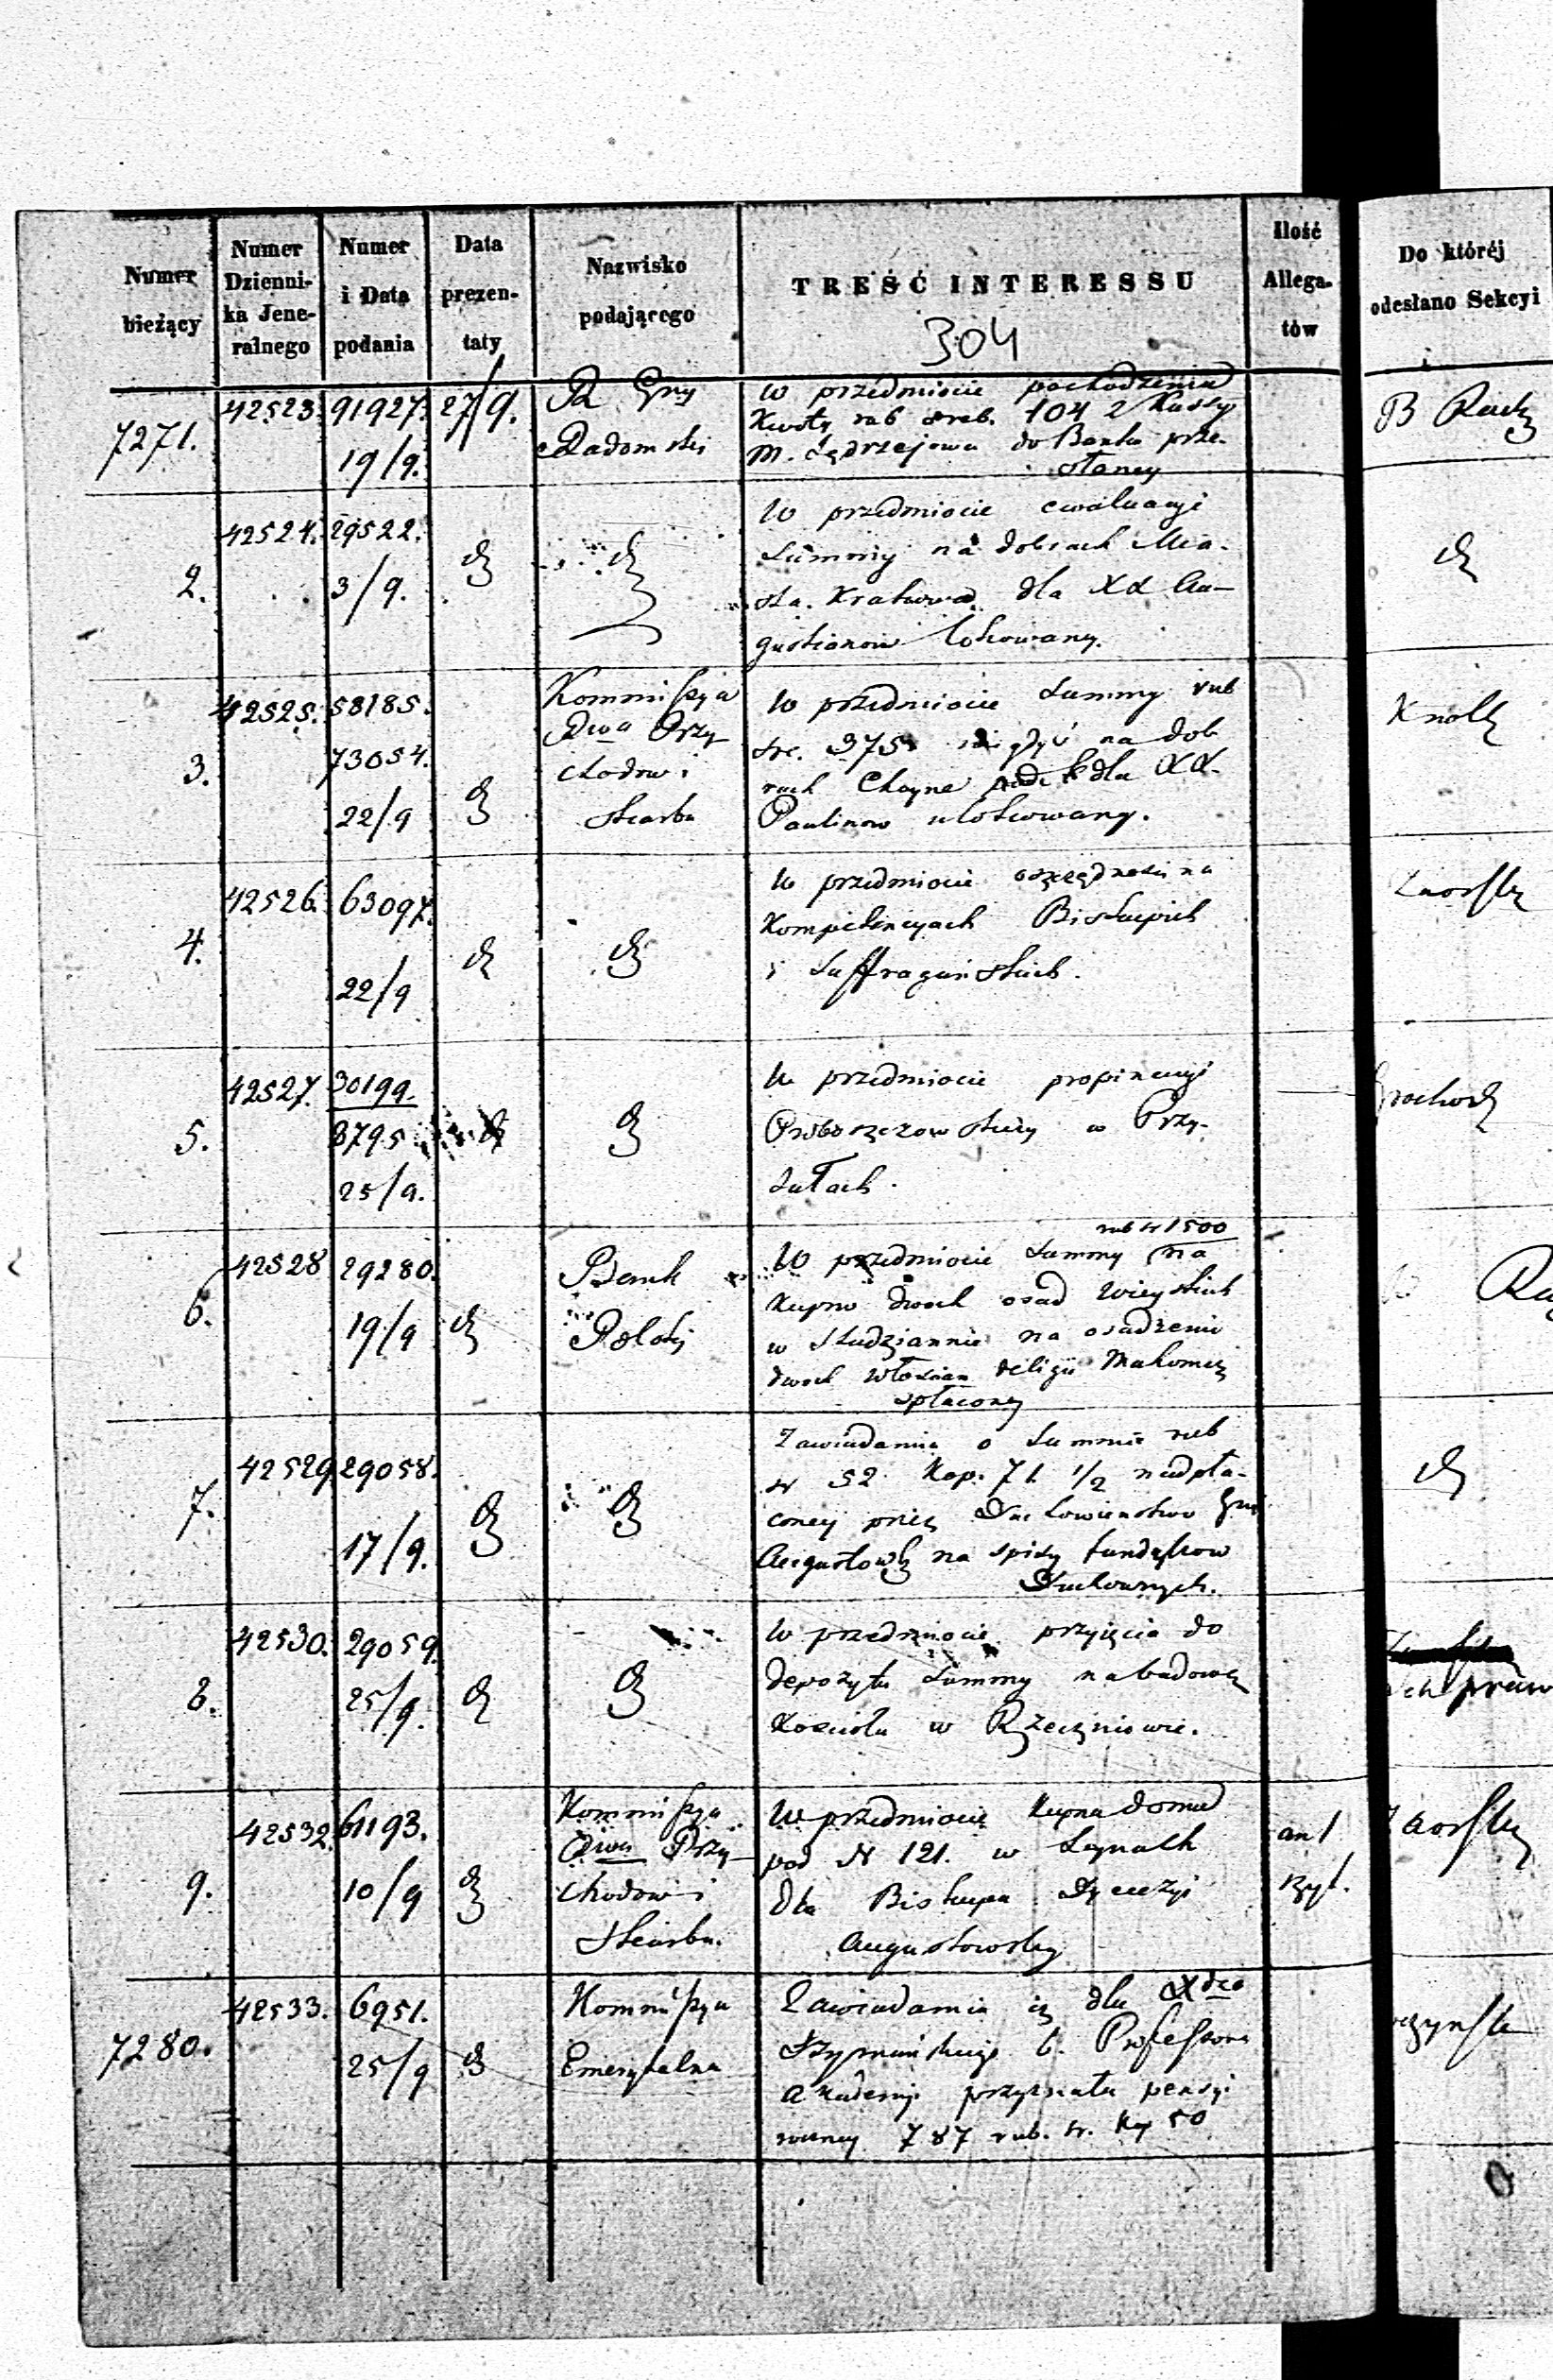 Numer bieżący | Numer Dzienni-ka Jene-ralnego | Numer i Data podania | Data prezen-taty | Nazwisko podającego | TREŚĆ INTERESSU | Ilość Allega-tów | Do któréj odesłano Sekcyi
304
7271.
42523.
91927.
19/9.
27/9.
Rz Gny
Radomski
W przedmiocie pochodzenia
Kwoty rub sreb. 104 z Kassy
M. Jędrzejowa do Banku prze-
słaney
B
2.
42524.
29522.
3/9.
W przedmiocie ewaluacyi
Summy na dobrach Mia-
sta Krakowa dla XX Au-
gustianow lokowany.
3.
42525.
58185.
73054.
22/9
Kommissya
Przy
chodow i
Skarbu
W przedmiocie Summy rub
sr. 375 na dob
rach dla XX.
Paulinow ulokowany.
Knoll
4.
42526.
63097.
22/9
W przedmiocie oszczędności na
Kompetencyach Biskupich
i Suffragańskich.
5.
42527.
30199.
8795
25/9.
W przedmiocie propinacyi
Proboszczowskiey w Przy-
tułach.
6.
42528
29280.
19/9
Bank
Polski
rub sr 1500
W przedmiocie Summy na
Kupno dwoch osad Wieyskich
w Studziannie na osadzenie
dwoch Włoscian Religii Mahomet
spłaconey
7.
42529
29058.
17/9.
Zawiadamia o Summie rub
sr 52 Kop. 71 1/2 nadpła-
coney przez Duchowienstwo Gni
Augustows na spisy funduszow
Duchownych.
8.
42530.
29059.
25/9.
W przedmiocie przyięcia do
depozytu Summy na budowę
Kosciola w Rzeczniowie.
9.
42532
61193.
10/9
Kommissya
Przy
chodow i
Skarbu.
W przedmiocie Kupna domu
pod N 121. w Seynach
dla Biskupa Dyecezyi
Augustowskiey
an 1
7280.
42533.
6951.
25/9
Kommissya
Emerytalna
Zawiadamia iż dla Xdza
Szymańskiego b. Professora
Akademii przyznała pensyi
roczney 787 rub. sr. Kop 50